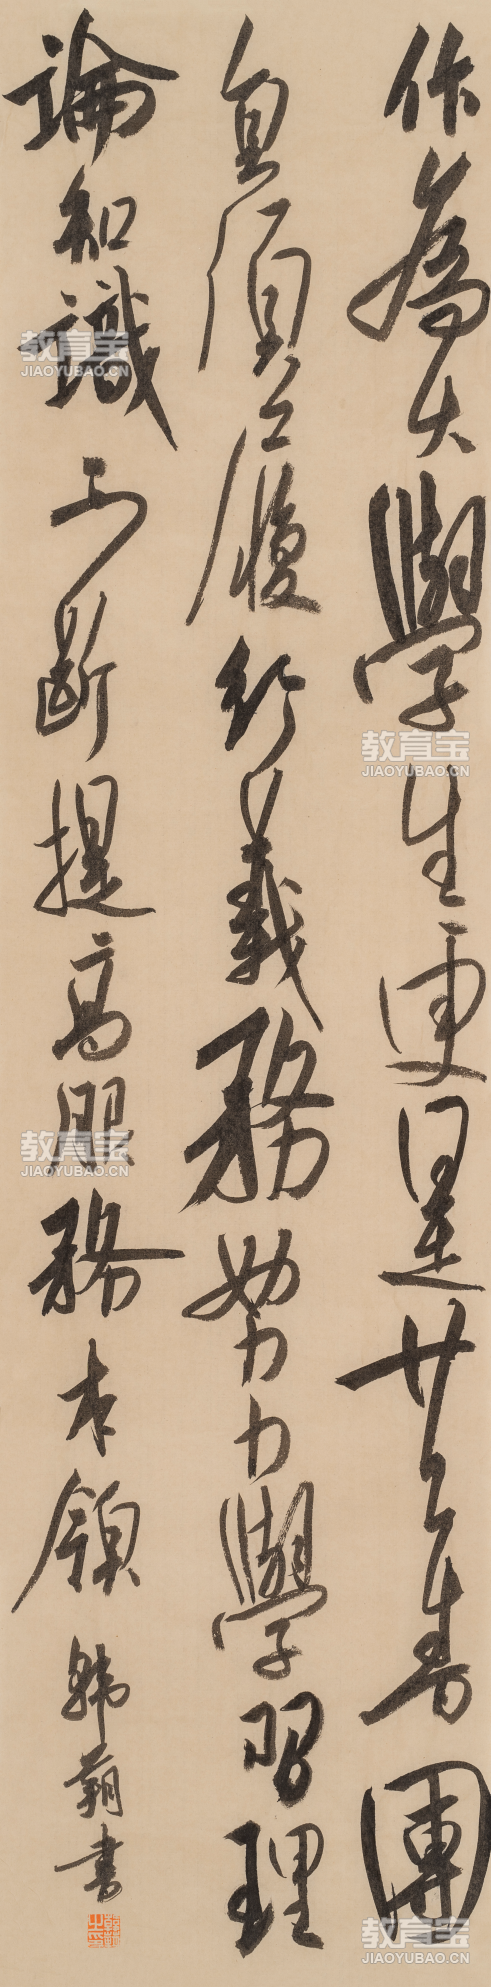 作為大學生更是共青團
員須履行義務努力學習理
論知識不斷提高服務本領
韓書
教育宝
JIAOYUBAO.CN
教育宝
JIAOYUBAO.CN
教育宝
JIAOYUBAO.CN
教育宝
JIAOYUBAO.CN